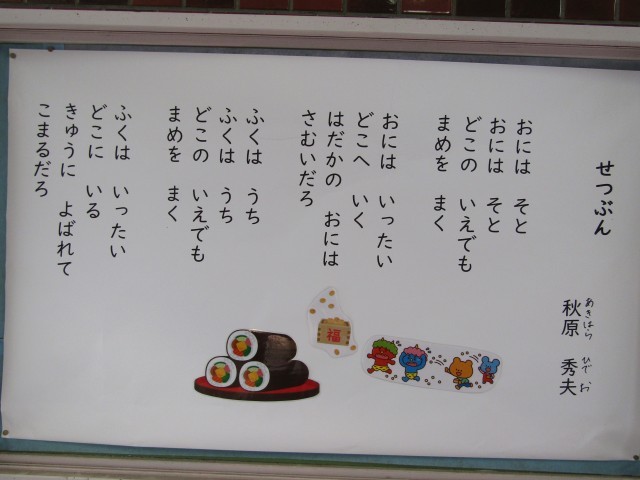 せつぶん
秋原 秀夫
あきはら ひでお
おには そと
おには そと
どこの いえでも
まめを まく
おには いったい
どこへ いく
はだかの おには
さむいだろ
ふくは うち
ふくは うち
どこの いえでも
まめを まく
ふくは いったい
どこに いる
きゅうに よばれて
こまるだろ
福